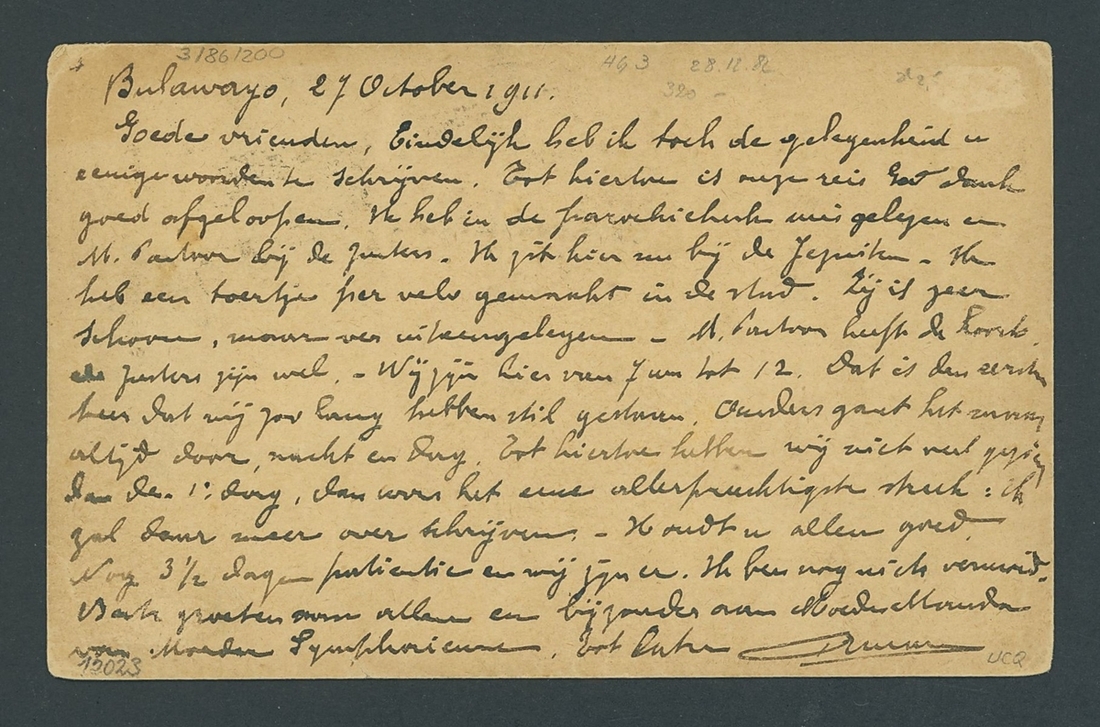 3/86/200
463 28.12.82
320 -
Bulawayo, 27 October 1911.
Goede vrienden, Eindelijk heb ik toch de gelegenheid u
eenige woorden te schrijven. Tot hiertoe is onze reis God dank
goed afgeloopen. Ik heb in de parochiekerk mis gelezen en
M. Pastoor bij de zusters. Ik zit hier nu bij de Jezuiten - Ik
heb een toertje per velo gemaakt in de stad. Zij is zeer
schoon, maar ver uiteengelegen - M. Pastoor heeft de koorts.
de zusters zijn wel. - Wij zijn hier van 7 uur tot 12. Dat is den eersten
keer dat wij zoo lang hebben stil gestaan. Anders gaat het
altijd door, nacht en dag. Tot hiertoe hebben wij niet veel gezien
dan de 1e dag, dan was het eene allerprachtigste streek : ik
zal daar meer over schrijven. - Houdt u allen goed.
Nog 3 1/2 dagen patientie en wij zijn er. Ik ben nog niets vermoeid.
Beste groeten aan allen en bijzonder aan Moeder
Moeder Symphorienne. Tot
12023
UCQ